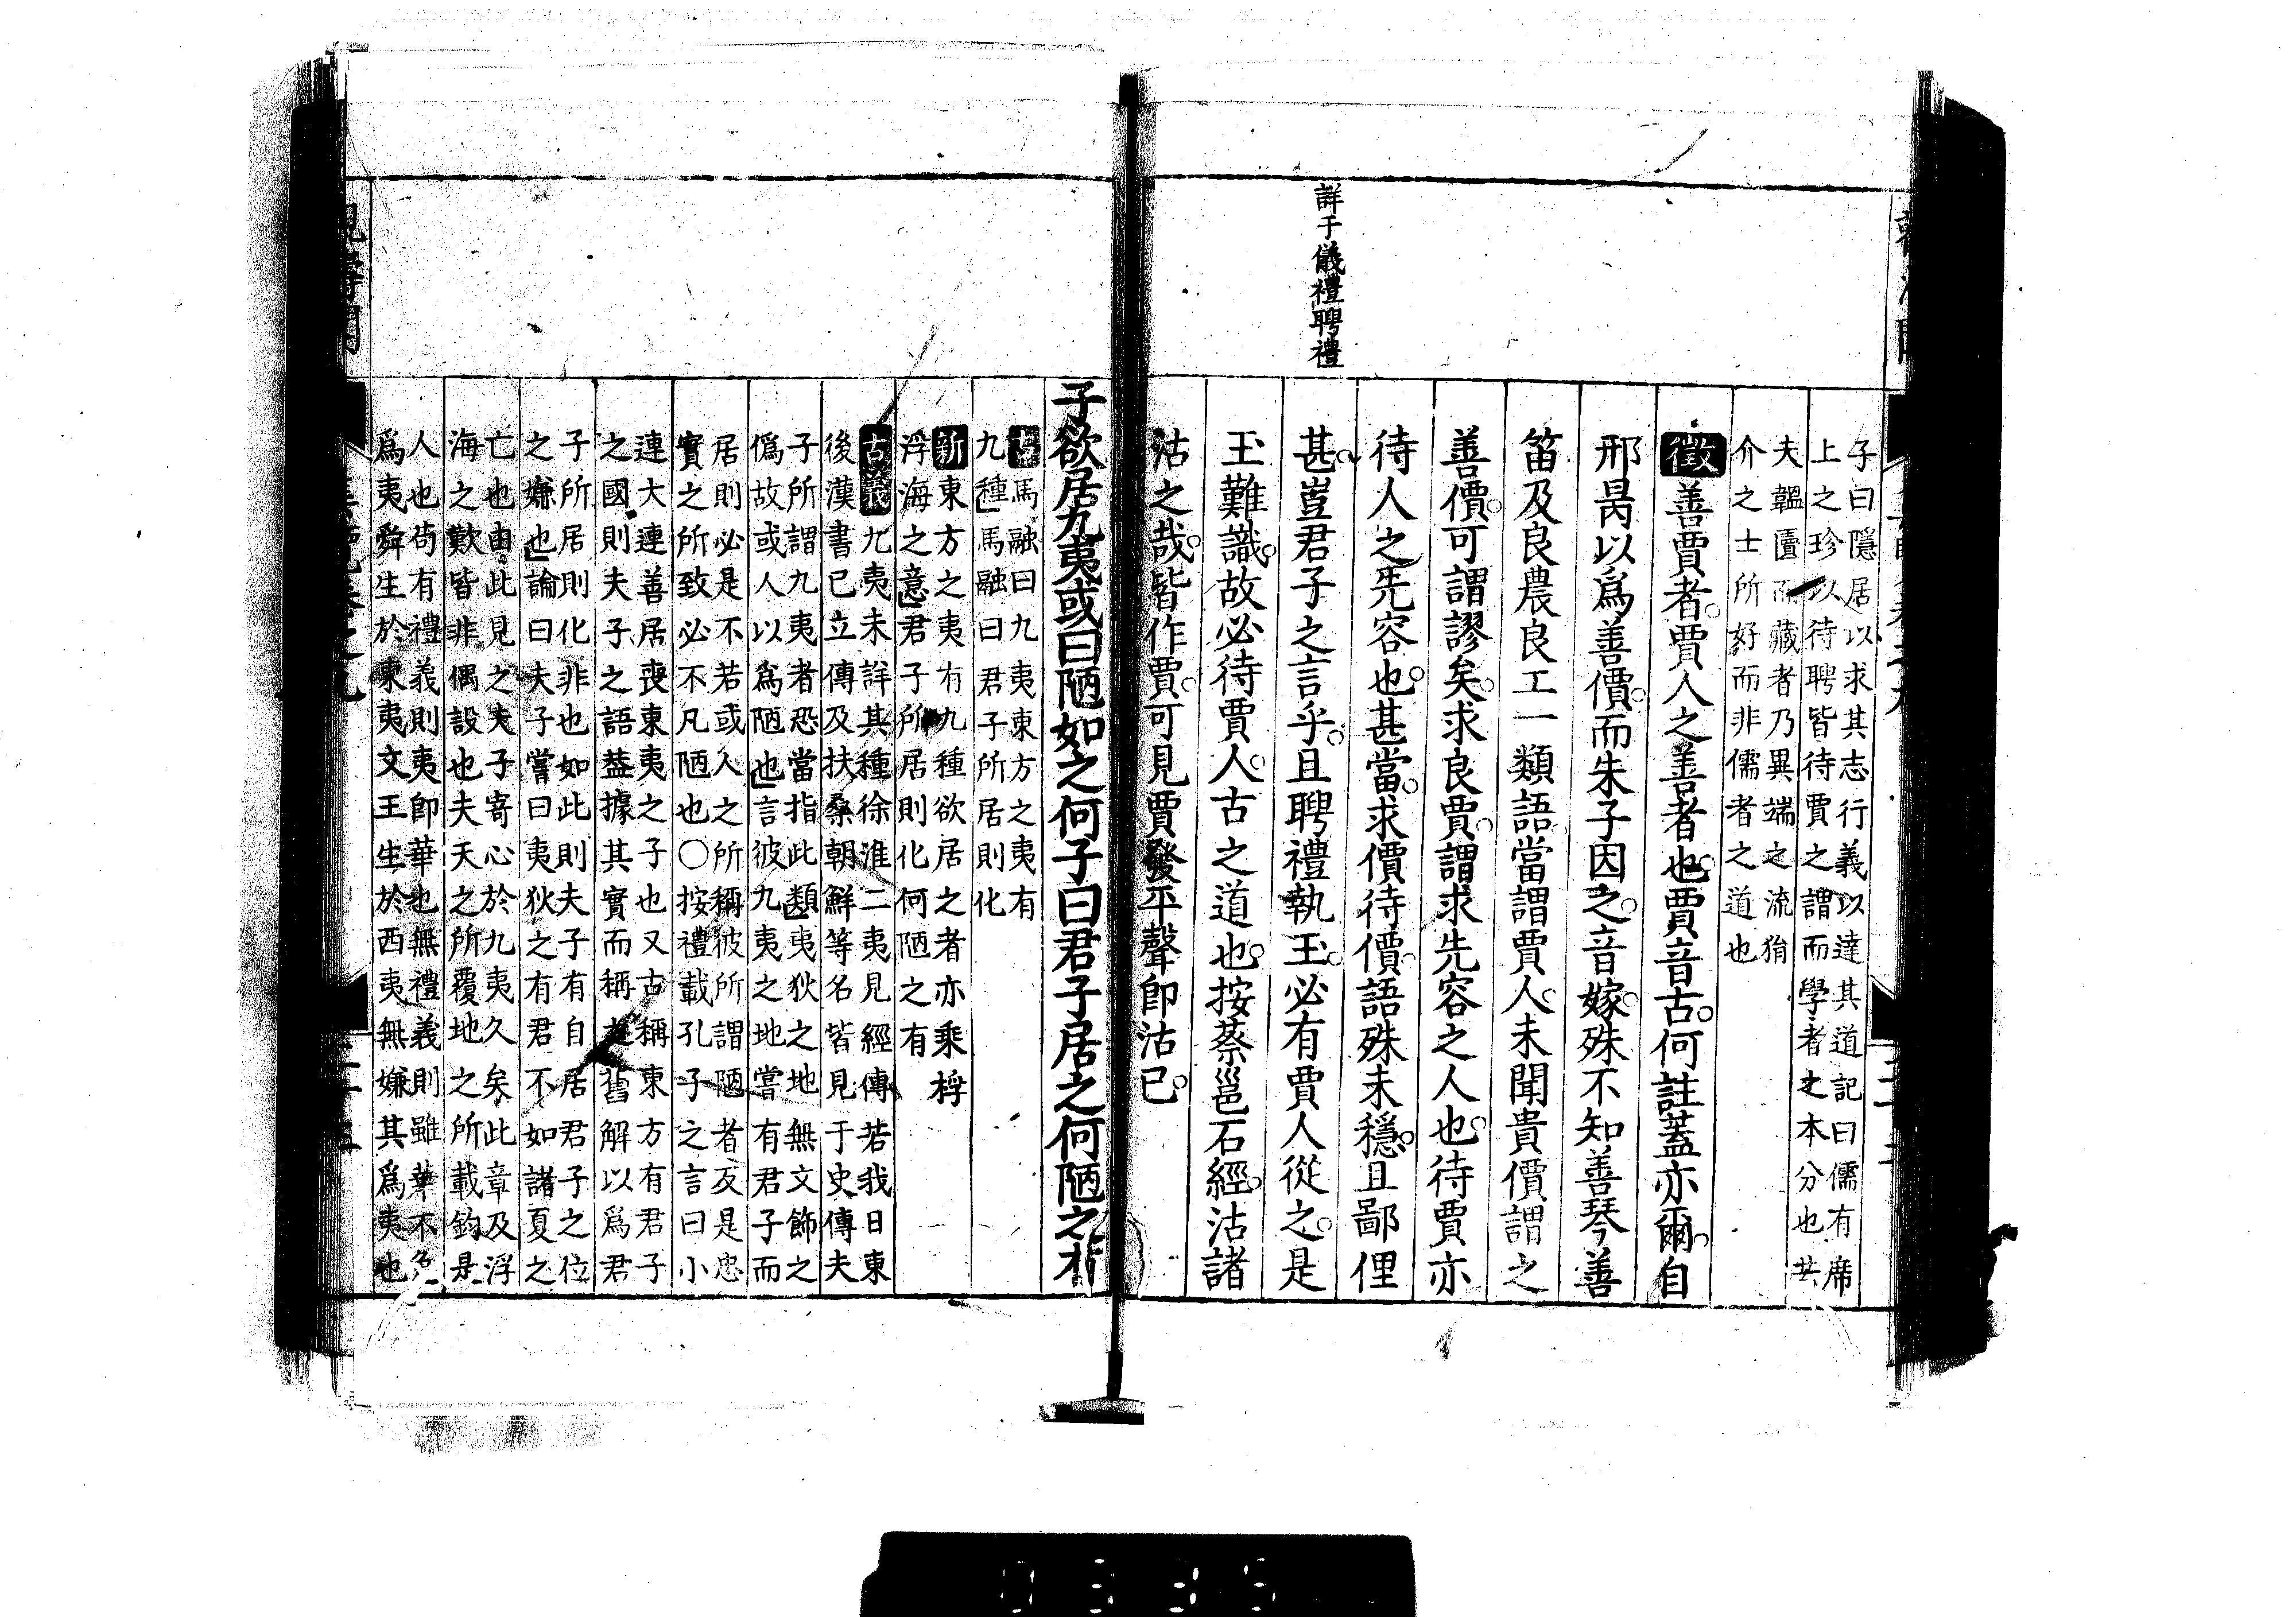 子曰隱居以求其志行義以達其道記曰儒有席
上之珍以待聘皆待賈之謂而學者之本分也
夫韞匵而藏者乃異端之流狷
介之士所好而非儒者之道也
徵善賈者。賈人之善者也。賈音古。何註蓋亦爾。自
邢昺以爲善價。而朱子因之。音嫁。殊不知善琴善
笛及良農良工一類語當謂賈人。未聞貴價謂之
善價。可謂謬矣。求良賈。謂求先容之人也。待賈亦
待人之先容也。甚當。求價待價。語殊未穩。且鄙俚
詳于儀禮聘禮
甚。豈君子之言乎。且聘禮執玉。必有賈人從之。是
玉難識。故必待賈人。古之道也。按蔡邕石經。沽諸
沽之哉。皆作賈。可見賈發平聲卽沽已。
子欲居九夷或曰陋如之何子曰君子居之何陋之有
古馬融曰九夷東方之夷有
九種馬融曰君子所居則化
新東方之夷有九種欲居之者亦乘桴
浮海之意君子所居則化何陋之有
古義九夷未詳其種徐淮二夷見經傳若我日東
後漢書已立傳及扶桑朝鮮等名皆見于史傳夫
子所謂九夷者恐當指此類夷狄之地無文飾之
僞故或人以爲陋也言彼九夷之地嘗有君子而
居則必是不若或人之所稱彼所謂陋者反是忠
實之所致必不凡陋也○按禮載孔子之言曰小
連大連善居喪東夷之子也又古稱東方有君子
之國則夫子之語蓋據其實而稱之舊解以爲君
子所居則化非也如此則夫子有自居君子之位
之嫌也論曰夫子嘗曰夷狄之有君不如諸夏之
亡也由此見之夫子寄心於九夷久矣此章及浮
海之歎皆非偶設也夫天之所覆地之所載鈞是
人也苟有禮義則夷卽華也無禮義則雖華不免
爲夷舜生於東夷文王生於西夷無嫌其爲夷也